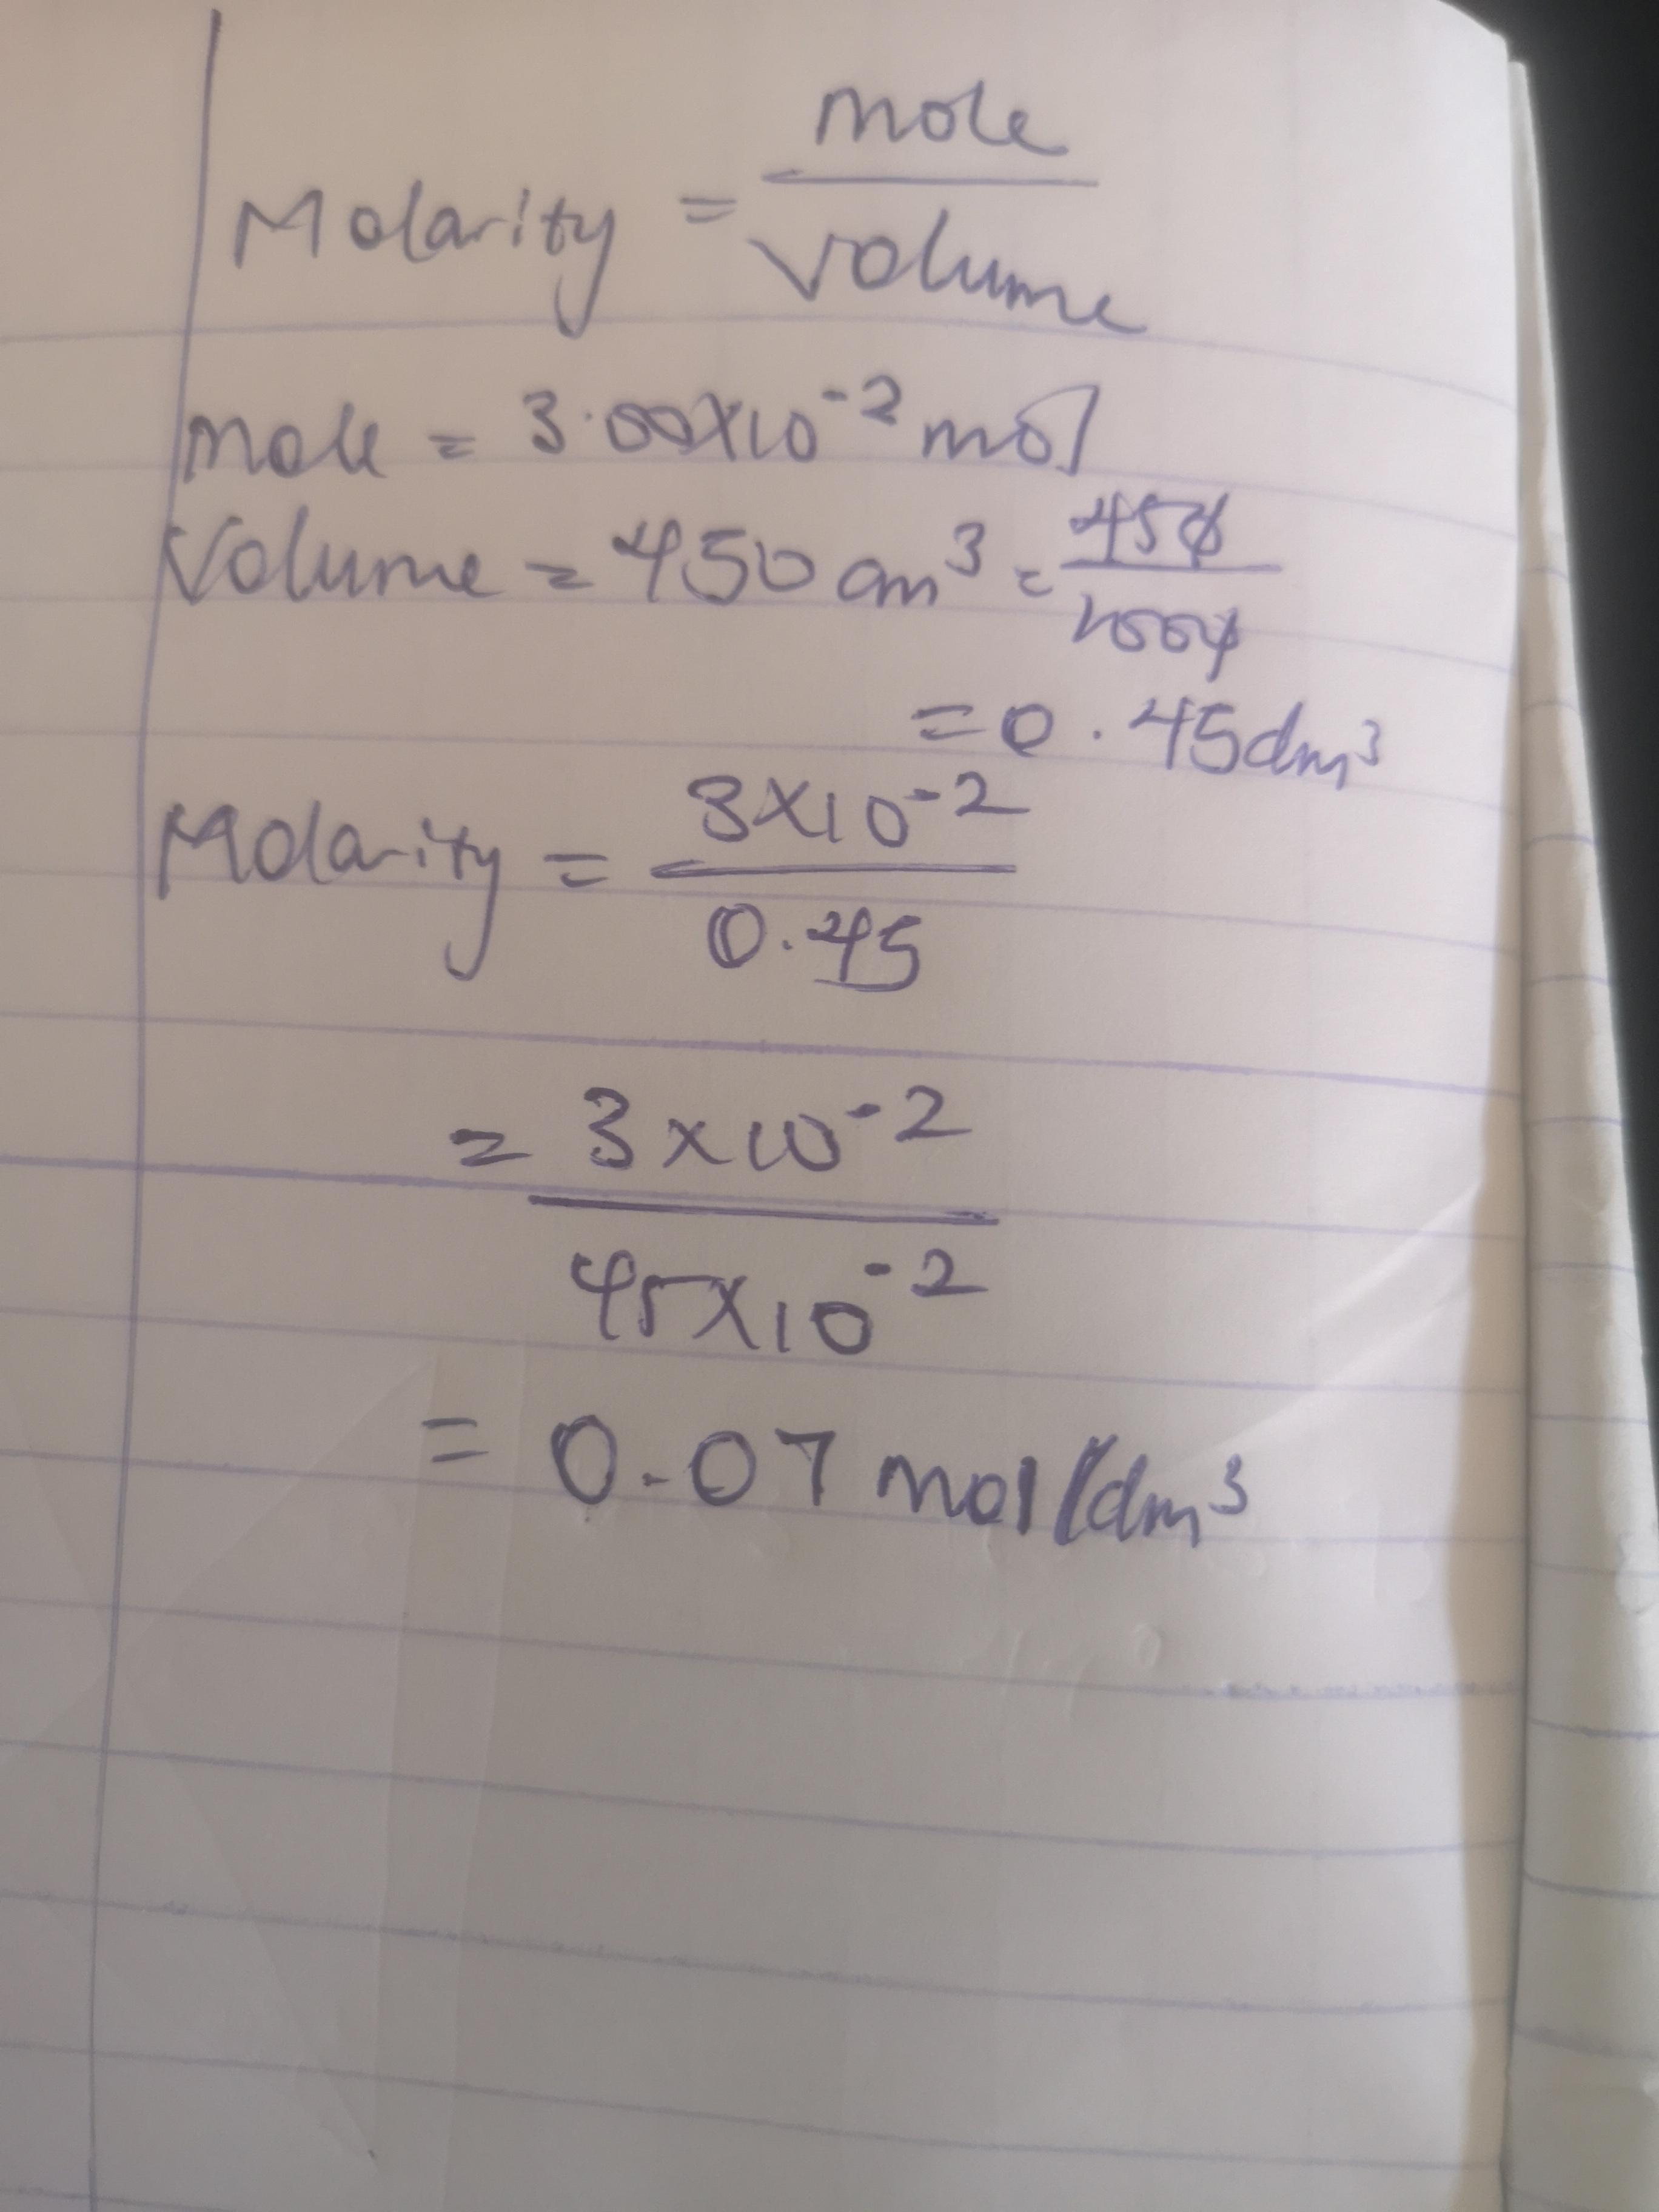 Molarity = mole / volume
mole = 3.00×10⁻² mol
Volume = 450 cm³ = 450 / 1000
= 0.45dm³
Molarity = 3×10⁻² / 0.45
= 3×10⁻² / 45×10⁻²
= 0.07 mol/dm³